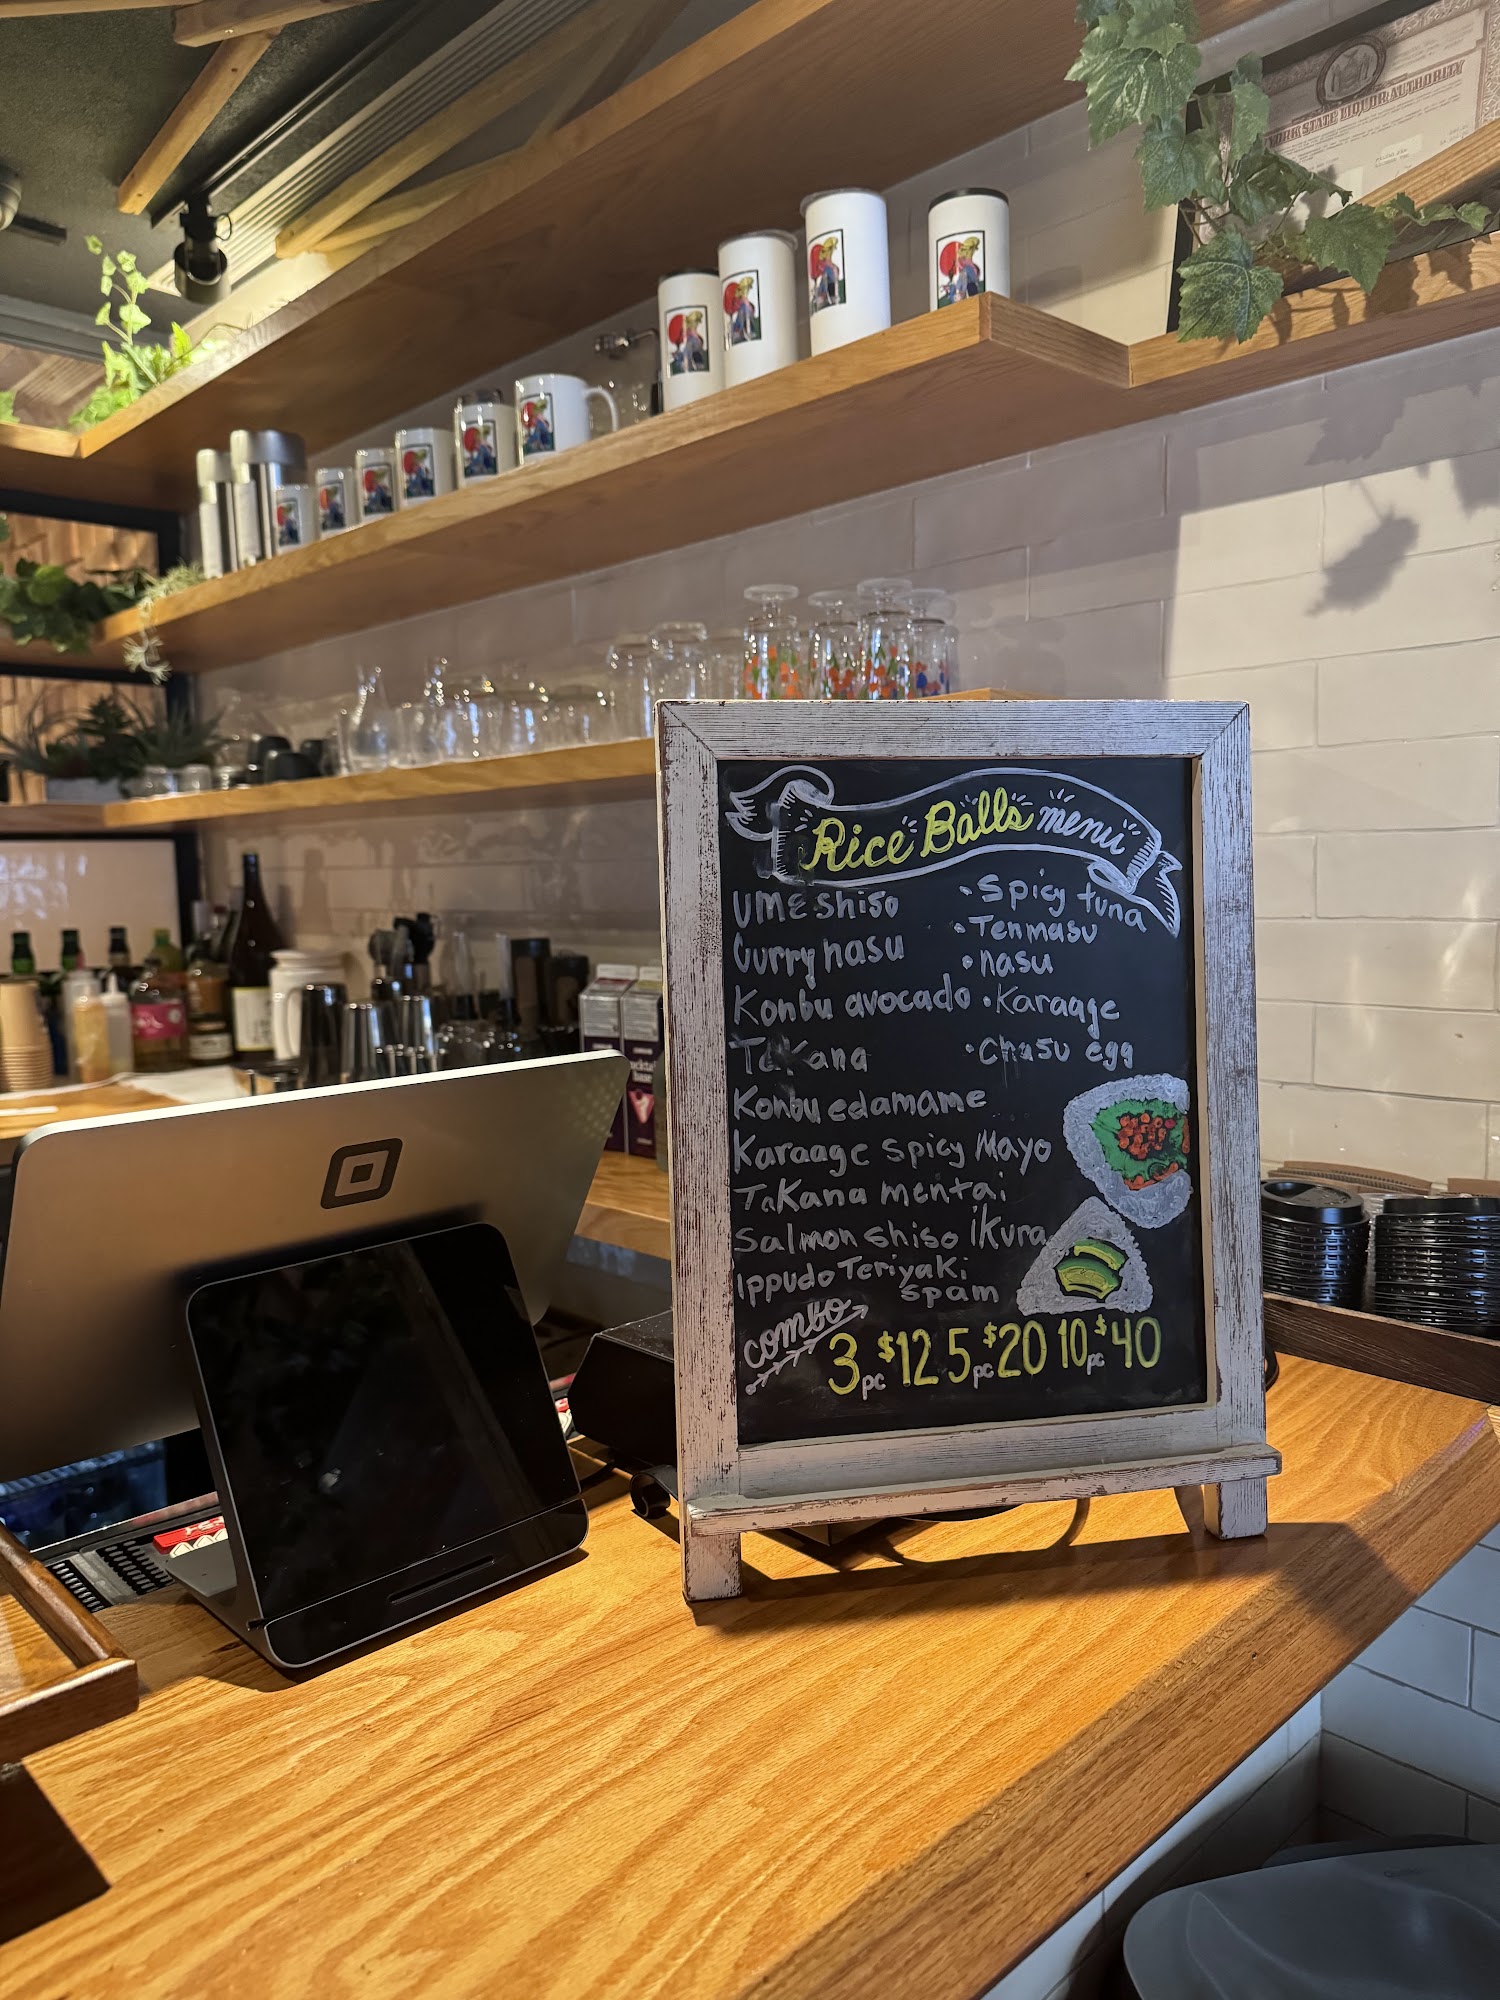 YORK STATE LIQUOR AUTHORITY
Rice Balls menu
UME shiso
Curry nasu
Konbu avocado
Takana
Konbu edamame
Karaage spicy Mayo
Takana mentai
Salmon shiso ikura
Ippudo Teriyaki
spam
• Spicy tuna
• Tenmasu
• nasu
• Karaage
• Chasu egg
combo
3pc $12 5pc $20 10pc $40